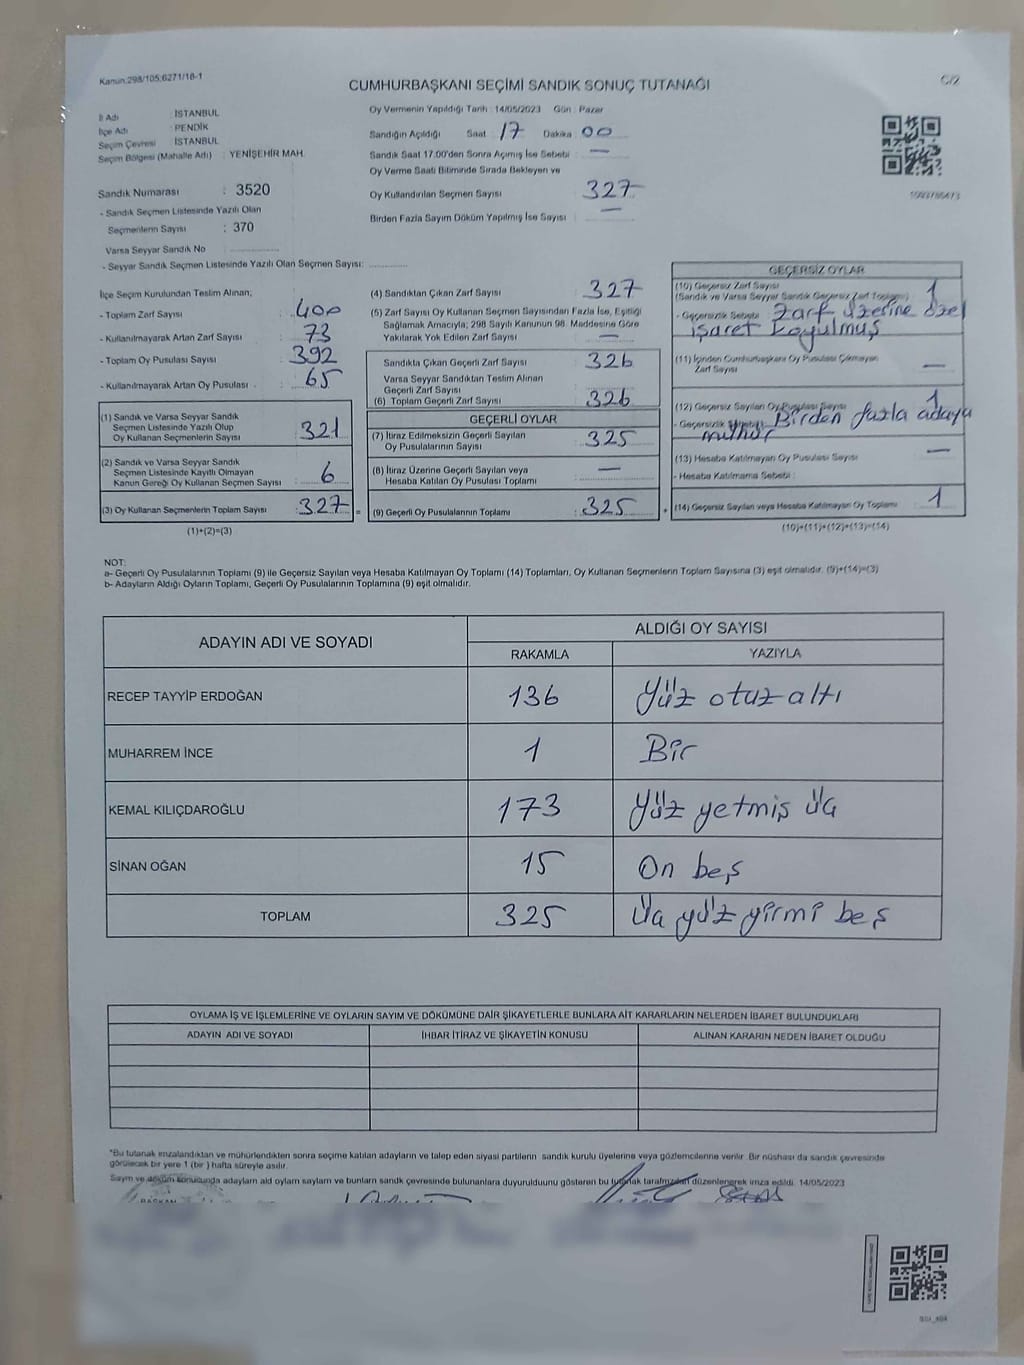 Kanun:298/105;6271/18-1
C/2
CUMHURBAŞKANI SEÇİMİ SANDIK SONUÇ TUTANAĞI
İl Adı : İSTANBUL
İlçe Adı : PENDİK
Seçim Çevresi : İSTANBUL
Seçim Bölgesi (Mahalle Adı) : YENİŞEHİR MAH.
Sandık Numarası : 3520
- Sandık Seçmen Listesinde Yazılı Olan
Seçmenlerin Sayısı : 370
Varsa Seyyar Sandık No
- Seyyar Sandık Seçmen Listesinde Yazılı Olan Seçmen Sayısı:
Oy Vermenin Yapıldığı Tarih : 14/05/2023 Gün : Pazar
Sandığın Açıldığı Saat 17 Dakika 00
Sandık Saat 17.00'den Sonra Açımış İse Sebebi : —
Oy Verme Saati Bitiminde Sırada Bekleyen ve
Oy Kullandırılan Seçmen Sayısı 327
Birden Fazla Sayım Döküm Yapılmış İse Sayısı : —
İlçe Seçim Kurulundan Teslim Alınan;
- Toplam Zarf Sayısı : 400
- Kullanılmayarak Artan Zarf Sayısı : 73
- Toplam Oy Pusulası Sayısı : 392
- Kullanılmayarak Artan Oy Pusulası : 65
(1) Sandık ve Varsa Seyyar Sandık
Seçmen Listesinde Yazılı Olup
Oy Kullanan Seçmenlerin Sayısı : 321
(2) Sandık ve Varsa Seyyar Sandık
Seçmen Listesinde Kayıtlı Olmayan
Kanun Gereği Oy Kullanan Seçmen Sayısı : 6
(3) Oy Kullanan Seçmenlerin Toplam Sayısı : 327
(1)+(2)=(3)
(4) Sandıktan Çıkan Zarf Sayısı : 327
(5) Zarf Sayısı Oy Kullanan Seçmen Sayısından Fazla İse, Eşitliği
Sağlamak Amacıyla; 298 Sayılı Kanunun 98. Maddesine Göre
Yakılarak Yok Edilen Zarf Sayısı : —
Sandıkta Çıkan Geçerli Zarf Sayısı : 326
Varsa Seyyar Sandıktan Teslim Alınan
Geçerli Zarf Sayısı
(6) Toplam Geçerli Zarf Sayısı : 326
GEÇERLİ OYLAR
(7) İtiraz Edilmeksizin Geçerli Sayılan
Oy Pusulasının Sayısı : 325
(8) İtiraz Üzerine Geçerli Sayılan veya
Hesaba Katılan Oy Pusulası Toplamı : —
(9) Geçerli Oy Pusulalarının Toplamı : 325
GEÇERSİZ OYLAR
(10) Geçersiz Zarf Sayısı 1
(Sandık ve Varsa Seyyar Sandık Geçersiz Zarf Toplamı)
- Geçersizlik Sebebi : Zarf üzerine özel
işaret koyulmuş
(11) İçinden Cumhurbaşkanı Oy Pusulası Çıkmayan
Zarf Sayısı —
(12) Geçersiz Sayılan Oy Pusulası Sayısı 1
- Geçersizlik Sebebi : Birden fazla adaya
mühür
(13) Hesaba Katılmayan Oy Pusulası Sayısı —
- Hesaba Katılmama Sebebi :
(14) Geçersiz Sayılan veya Hesaba Katılmayan Oy Toplamı : 1
(10)+(11)+(12)+(13)=(14)
NOT:
a- Geçerli Oy Pusulalarının Toplamı (9) ile Geçersiz Sayılan veya Hesaba Katılmayan Oy Toplamı (14) Toplamları, Oy Kullanan Seçmenlerin Toplam Sayısına (3) eşit olmalıdır. (9)+(14)=(3)
b- Adayların Aldığı Oyların Toplamı, Geçerli Oy Pusulalarının Toplamına (9) eşit olmalıdır.
ADAYIN ADI VE SOYADI
ALDIĞI OY SAYISI
RAKAMLA YAZIYLA
RECEP TAYYİP ERDOĞAN 136 Yüz otuz altı
MUHARREM İNCE 1 Bir
KEMAL KILIÇDAROĞLU 173 Yüz yetmiş üç
SİNAN OĞAN 15 On beş
TOPLAM 325 Üç yüz yirmi beş
OYLAMA İŞ VE İŞLEMLERİNE VE OYLARIN SAYIM VE DÖKÜMÜNE DAİR ŞİKAYETLERLE BUNLARA AİT KARARLARIN NELERDEN İBARET BULUNDUKLARI
ADAYIN ADI VE SOYADI İHBAR İTİRAZ VE ŞİKAYETİN KONUSU ALINAN KARARIN NEDEN İBARET OLDUĞU
*Bu tutanak imzalandıktan ve mühürlendikten sonra seçime katılan adayların ve talep eden siyasi partilerin sandık kurulu üyelerine veya gözlemcilerine verilir. Bir nüshası da sandık çevresinde
görülecek bir yere 1 (bir) hafta süreyle asılır.
Sayım ve döküm sonucunda adayların aldığı oyların sayısını ve bunların sandık çevresinde bulunanlara duyurulduğunu gösteren bu tutanak tarafımızdan düzenlenerek imza edildi. 14/05/2023
BAŞKAN